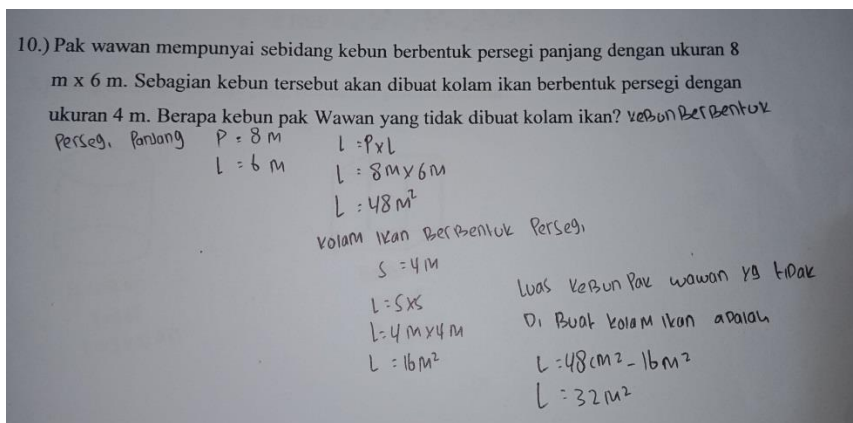 10.) Pak wawan mempunyai sebidang kebun berbentuk persegi panjang dengan ukuran 8
m x 6 m. Sebagian kebun tersebut akan dibuat kolam ikan berbentuk persegi dengan
ukuran 4 m. Berapa kebun pak Wawan yang tidak dibuat kolam ikan? keBun BerBentuk
Persegi Panjang P = 8 m
l = 6 m
L = P x L
L = 8m x 6m
L = 48 m²
kolam ikan BerBentuk Persegi
S = 4 m
L = S x S
L = 4 m x 4 m
L = 16 m²
Luas keBun Pak wawan yg tiDak
Di Buat kolam ikan aDalah
L = 48 cm² - 16 m²
L = 32 m²